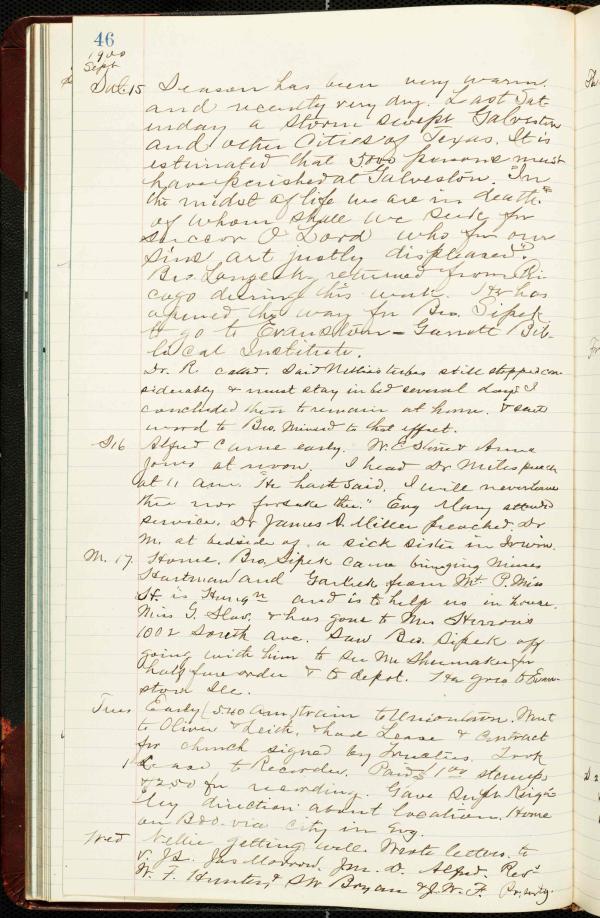 46
1900
Sept
Sat. 15 Season has been very warm
and recently very dry. Last Sat-
urday a storm swept Galveston
and other Cities of Texas. It is
estimated that 5000 persons must
have perished at Galveston. "In
the midst of life we are in death."
of whom shall we seek for
succor O Lord who for our
sins art justly displeased?
Bro returned from
cago during this week. He has
opened the way for Bro. Sipek
to go to Evanston - Garrett Bib-
lical Institute.
Dr. R. called. Said Nellie still stopped con-
siderably & must stay in bed several days I
concluded then to remain at home. & sent
word to Bro. to that effect.
S 16 Alfred came early. W. C. & Anna
Jones at noon. I heard Dr Miles preach
at 11 am. "He hath said, I will never leave
thee nor forsake thee." Evg Mary attended
service. Dr James R. Miller preached. Dr
M. at bedside of a sick sister in Irwin.
M. 17. Home. Bro. Sipek came bringing Misses
Hartman and from Mt. P. Miss
H. is Hungn and is to help us in house.
Miss G. Slav. & has gone to Mrs Herron's
1002 South Ave. Saw Bro. Sipek off
going with him to see Mr Shumaker for
half fare order & to depot. He goes to Evan-
ston Ill.
Tues Early (5.40 am) train to Uniontown. Went
to Oliver & had Lease & Contract
for church signed by Trustees. Took
18 Lease to Recorder. Paid 1.00 stamps
& 2.50 for recording. Gave Supt
ley direction about location. Home
on B&O. via city in Evg.
Wed Nellie getting well. Wrote letters to
V. Jas Morrow, Jm. D. Alfred, Revs
W. F. Hunter, SW Bryan & J. W. F.